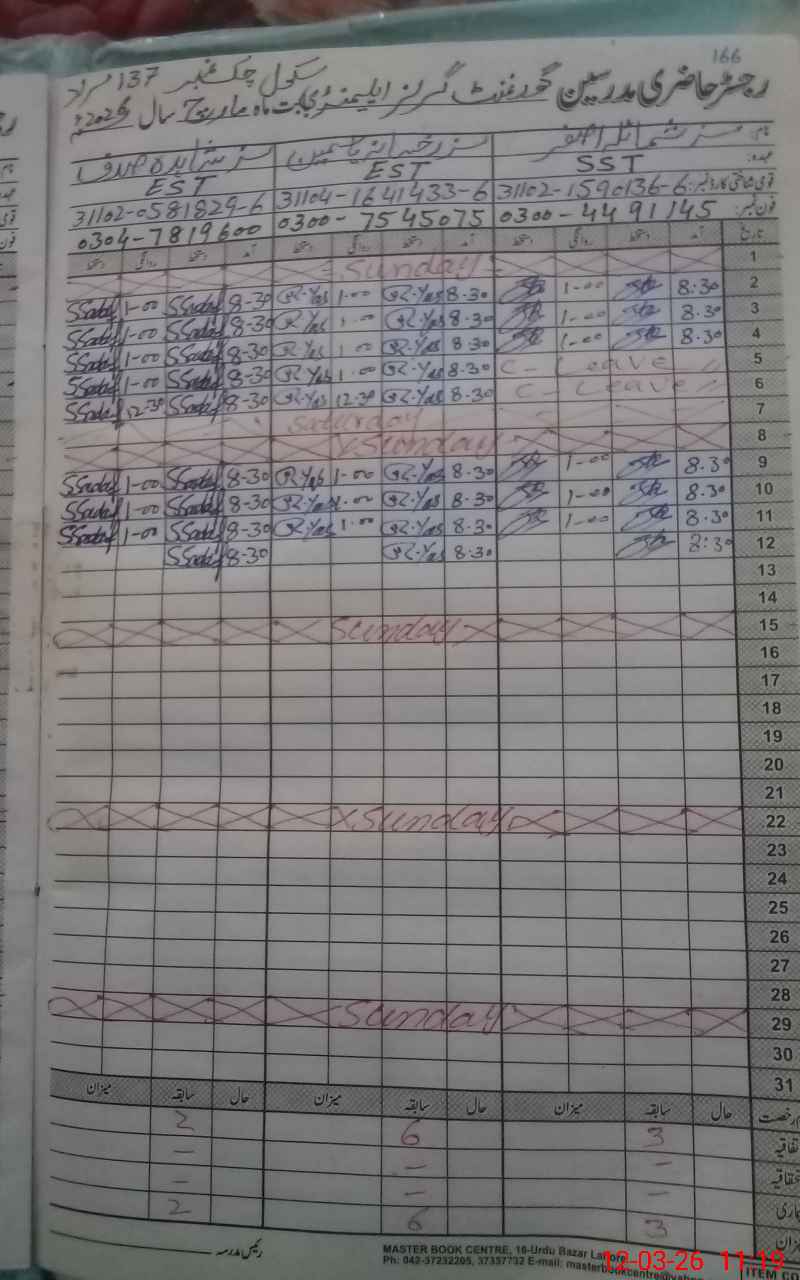 166
رجسٹر حاضری مدرسین گورنمنٹ گرلز ایلیمنٹری سکول چک نمبر 137 مراد
بابت ماہ مارچ سال 2026ء
نام: مسز شمائلہ اصغر مسز رخسانہ یاسمین مسز شاہدہ صدف
عہدہ: SST EST EST
قومی شناختی کارڈ نمبر: 31102-1590136-6 31104-1641433-6 31102-0581829-6
فون نمبر: 0300-4491145 0300-7545075 0304-7819600
تاریخ آمد دستخط روانگی دستخط آمد دستخط روانگی دستخط آمد دستخط روانگی دستخط
1 Sunday
2 8.30 1-00 8.30 R.Yas 1.00 R.Yas 8-30 SSadaf 1-00 SSadaf
3 8.30 1-00 8.30 R.Yas 1.00 R.Yas 8-30 SSadaf 1-00 SSadaf
4 8.30 1-00 8.30 R.Yas 1.00 R.Yas 8-30 SSadaf 1-00 SSadaf
5 C- Leave 8.30 R.Yas 1.00 R.Yas 8-30 SSadaf 1-00 SSadaf
6 C- Leave 8.30 R.Yas 12.30 R.Yas 8-30 SSadaf 12-30 SSadaf
7 Saturday
8 Sunday
9 8.30 1-00 8.30 R.Yas 1-00 R.Yas 8-30 SSadaf 1-00 SSadaf
10 8.30 1-00 8.30 R.Yas 1.00 R.Yas 8-30 SSadaf 1-00 SSadaf
11 8.30 1-00 8.30 R.Yas 1.00 R.Yas 8-30 SSadaf 1-00 SSadaf
12 8:30 8.30 R.Yas 8-30 SSadaf
13
14
15 Sunday
16
17
18
19
20
21
22 Sunday
23
24
25
26
27
28
29 Sunday
30
31
رخصت حال سابقہ میزان حال سابقہ میزان حال سابقہ میزان
3 6 2
- - -
- - -
3 6 2
رئیس مدرسہ
MASTER BOOK CENTRE, 16-Urdu Bazar Lahore
Ph: 042-37232205, 37357732 E-mail: masterbookcentre
12-03-26 11:19
ITEM